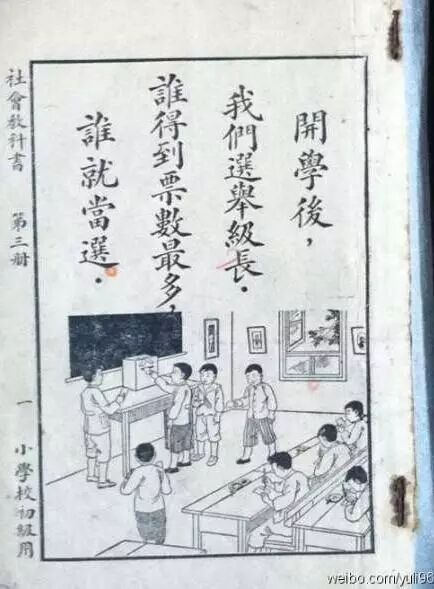 開學後，
我們選舉級長．
誰得到票數最多，
誰就當選．
社會教科書　第三册　一　小學校初級用
weibo.com/yuli96